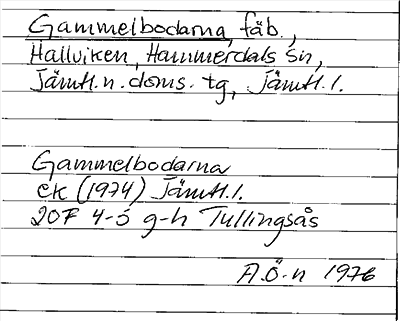 Gammelbodarna, fäb.,
Hallviken, Hammerdals sn,
Jämtl.n.doms.tg, Jämtl.l.
Gammelbodarna
ek (1974) Jämtl.l.
20F 4-5 g-h Tullingsås
A.Ö-n 1976